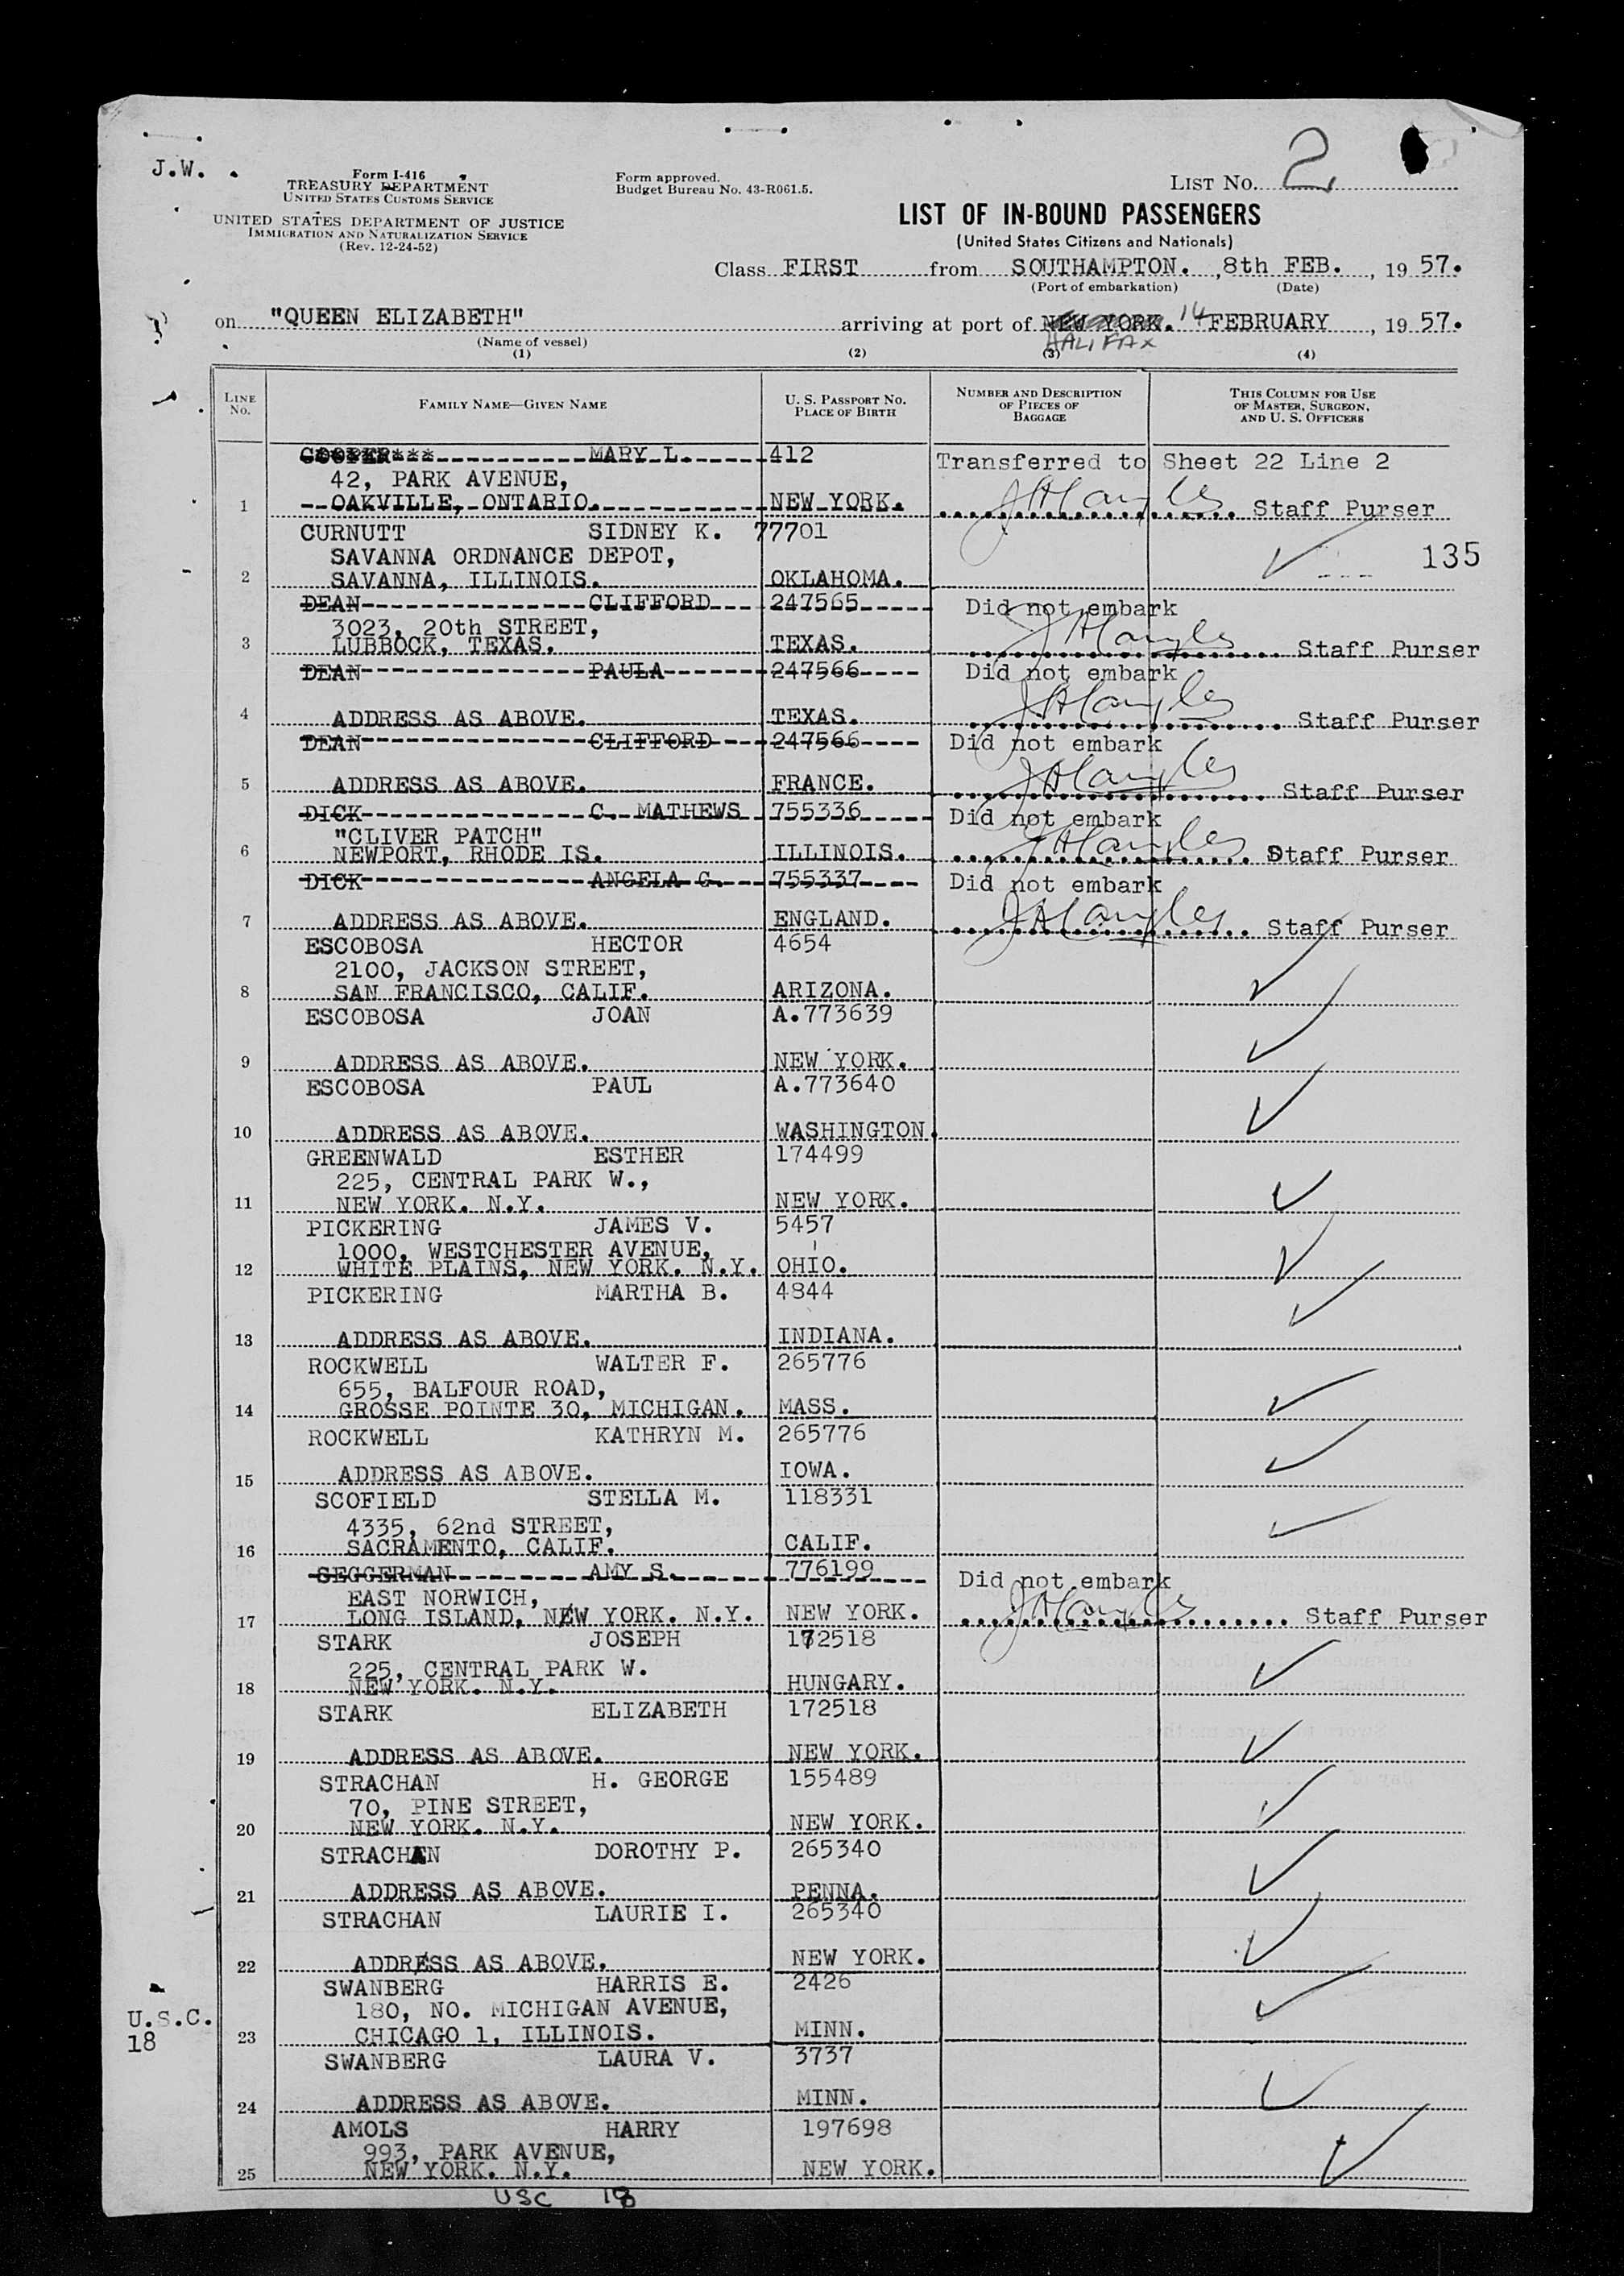 J.W.
Form I-416
TREASURY DEPARTMENT
UNITED STATES CUSTOMS SERVICE
UNITED STATES DEPARTMENT OF JUSTICE
IMMIGRATION AND NATURALIZATION SERVICE
(Rev. 12-24-52)
Form approved.
Budget Bureau No. 43-R061.5.
LIST NO. 2
LIST OF IN-BOUND PASSENGERS
(United States Citizens and Nationals)
Class FIRST from SOUTHAMPTON. , 8th FEB. , 19 57.
(Port of embarkation) (Date)
on "QUEEN ELIZABETH" arriving at port of NEW YORK. 14 FEBRUARY , 19 57.
HALIFAX
(Name of vessel)
(1) (2) (3) (4)
LINE NO. FAMILY NAME—GIVEN NAME U. S. PASSPORT NO. PLACE OF BIRTH NUMBER AND DESCRIPTION OF PIECES OF BAGGAGE THIS COLUMN FOR USE OF MASTER, SURGEON, AND U. S. OFFICERS
COOPER*** MARY L. 412 Transferred to Sheet 22 Line 2
42, PARK AVENUE,
1 OAKVILLE, ONTARIO. NEW YORK. Staff Purser
CURNUTT SIDNEY K. 77701
SAVANNA ORDNANCE DEPOT, 135
2 SAVANNA, ILLINOIS. OKLAHOMA.
DEAN CLIFFORD 247565 Did not embark
3023, 20th STREET,
3 LUBBOCK, TEXAS. TEXAS. Staff Purser
DEAN PAULA 247566 Did not embark
4 ADDRESS AS ABOVE. TEXAS. Staff Purser
DEAN CLIFFORD 247566 Did not embark
5 ADDRESS AS ABOVE. FRANCE. Staff Purser
DICK C. MATHEWS 755336 Did not embark
"CLIVER PATCH"
6 NEWPORT, RHODE IS. ILLINOIS. Staff Purser
DICK ANGELA G. 755337 Did not embark
7 ADDRESS AS ABOVE. ENGLAND. Staff Purser
ESCOBOSA HECTOR 4654
2100, JACKSON STREET,
8 SAN FRANCISCO, CALIF. ARIZONA.
ESCOBOSA JOAN A.773639
9 ADDRESS AS ABOVE. NEW YORK.
ESCOBOSA PAUL A.773640
10 ADDRESS AS ABOVE. WASHINGTON.
GREENWALD ESTHER 174499
225, CENTRAL PARK W.,
11 NEW YORK. N.Y. NEW YORK.
PICKERING JAMES V. 5457
1000, WESTCHESTER AVENUE,
12 WHITE PLAINS, NEW YORK. N.Y. OHIO.
PICKERING MARTHA B. 4844
13 ADDRESS AS ABOVE. INDIANA.
ROCKWELL WALTER F. 265776
655, BALFOUR ROAD,
14 GROSSE POINTE 30, MICHIGAN. MASS.
ROCKWELL KATHRYN M. 265776
15 ADDRESS AS ABOVE. IOWA.
SCOFIELD STELLA M. 118331
4335, 62nd STREET,
16 SACRAMENTO, CALIF. CALIF.
SEGGERMAN AMY S. 776199 Did not embark
EAST NORWICH,
17 LONG ISLAND, NEW YORK. N.Y. NEW YORK. Staff Purser
STARK JOSEPH 172518
225, CENTRAL PARK W.
18 NEW YORK. N.Y. HUNGARY.
STARK ELIZABETH 172518
19 ADDRESS AS ABOVE. NEW YORK.
STRACHAN H. GEORGE 155489
70, PINE STREET,
20 NEW YORK. N.Y. NEW YORK.
STRACHAN DOROTHY P. 265340
21 ADDRESS AS ABOVE. PENNA.
STRACHAN LAURIE I. 265340
22 ADDRESS AS ABOVE. NEW YORK.
SWANBERG HARRIS E. 2426
180, NO. MICHIGAN AVENUE,
U.S.C.
18
23 CHICAGO 1, ILLINOIS. MINN.
SWANBERG LAURA V. 3737
24 ADDRESS AS ABOVE. MINN.
AMOLS HARRY 197698
993, PARK AVENUE,
25 NEW YORK. N.Y. NEW YORK.
USC 18